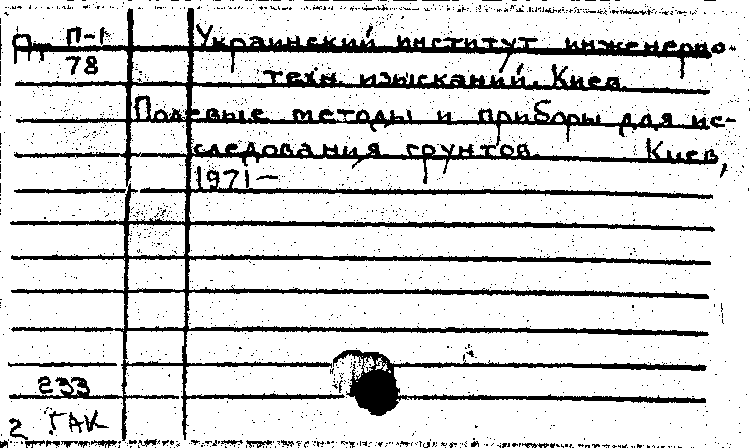 Пт П-1 Украинский институт инженерно-
78 техн. изысканий. Киев.
Полевые методы и приборы для ис-
следования грунтов. Киев,
1971—
233
2 ГАК